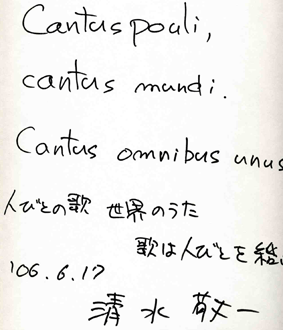 Cantus pouli,
cantus mundi.
Cantus omnibus unus
人びとの歌 世界のうた
歌は人びとを結
'06.6.17
清水敬一